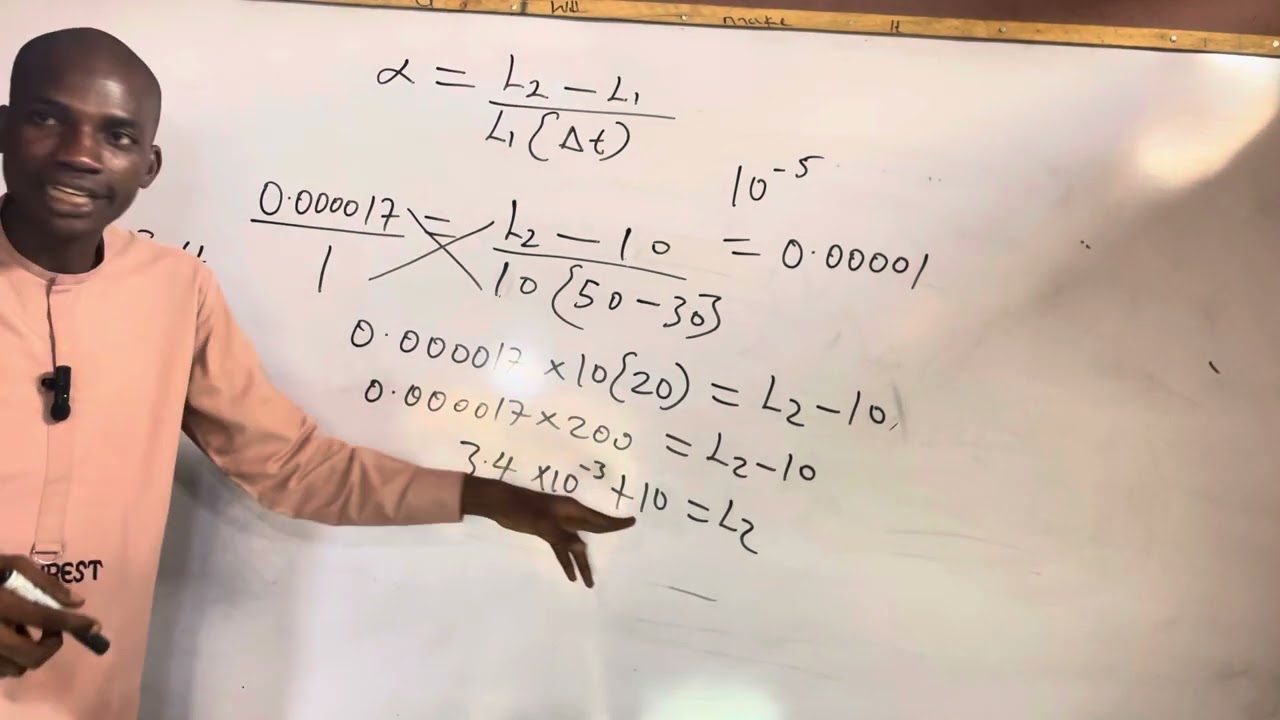 Will make it
α = L₂ − L₁ / L₁(Δt)
10⁻⁵
0.000017 / 1 = L₂ − 10 / 10{50 − 30}
= 0.00001
0.000017 × 10(20) = L₂ − 10
0.000017 × 200 = L₂ − 10
3.4 × 10⁻³ + 10 = L₂
REST